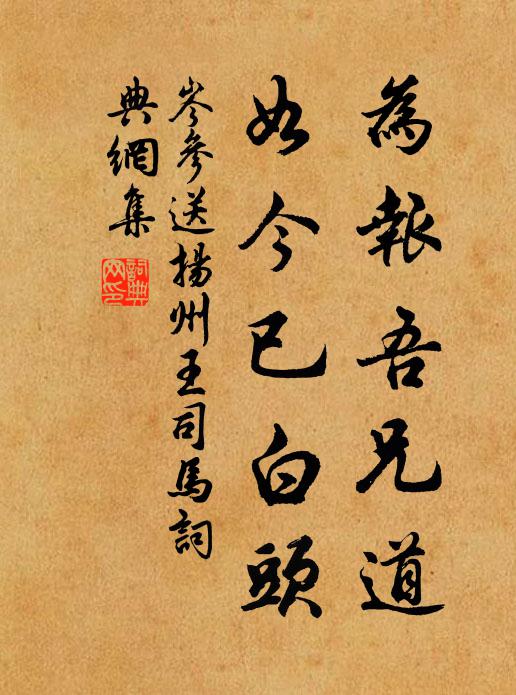 為報吾兄道
如今已白頭
岑參送揚州王司馬詞
典網集
詞典
网印